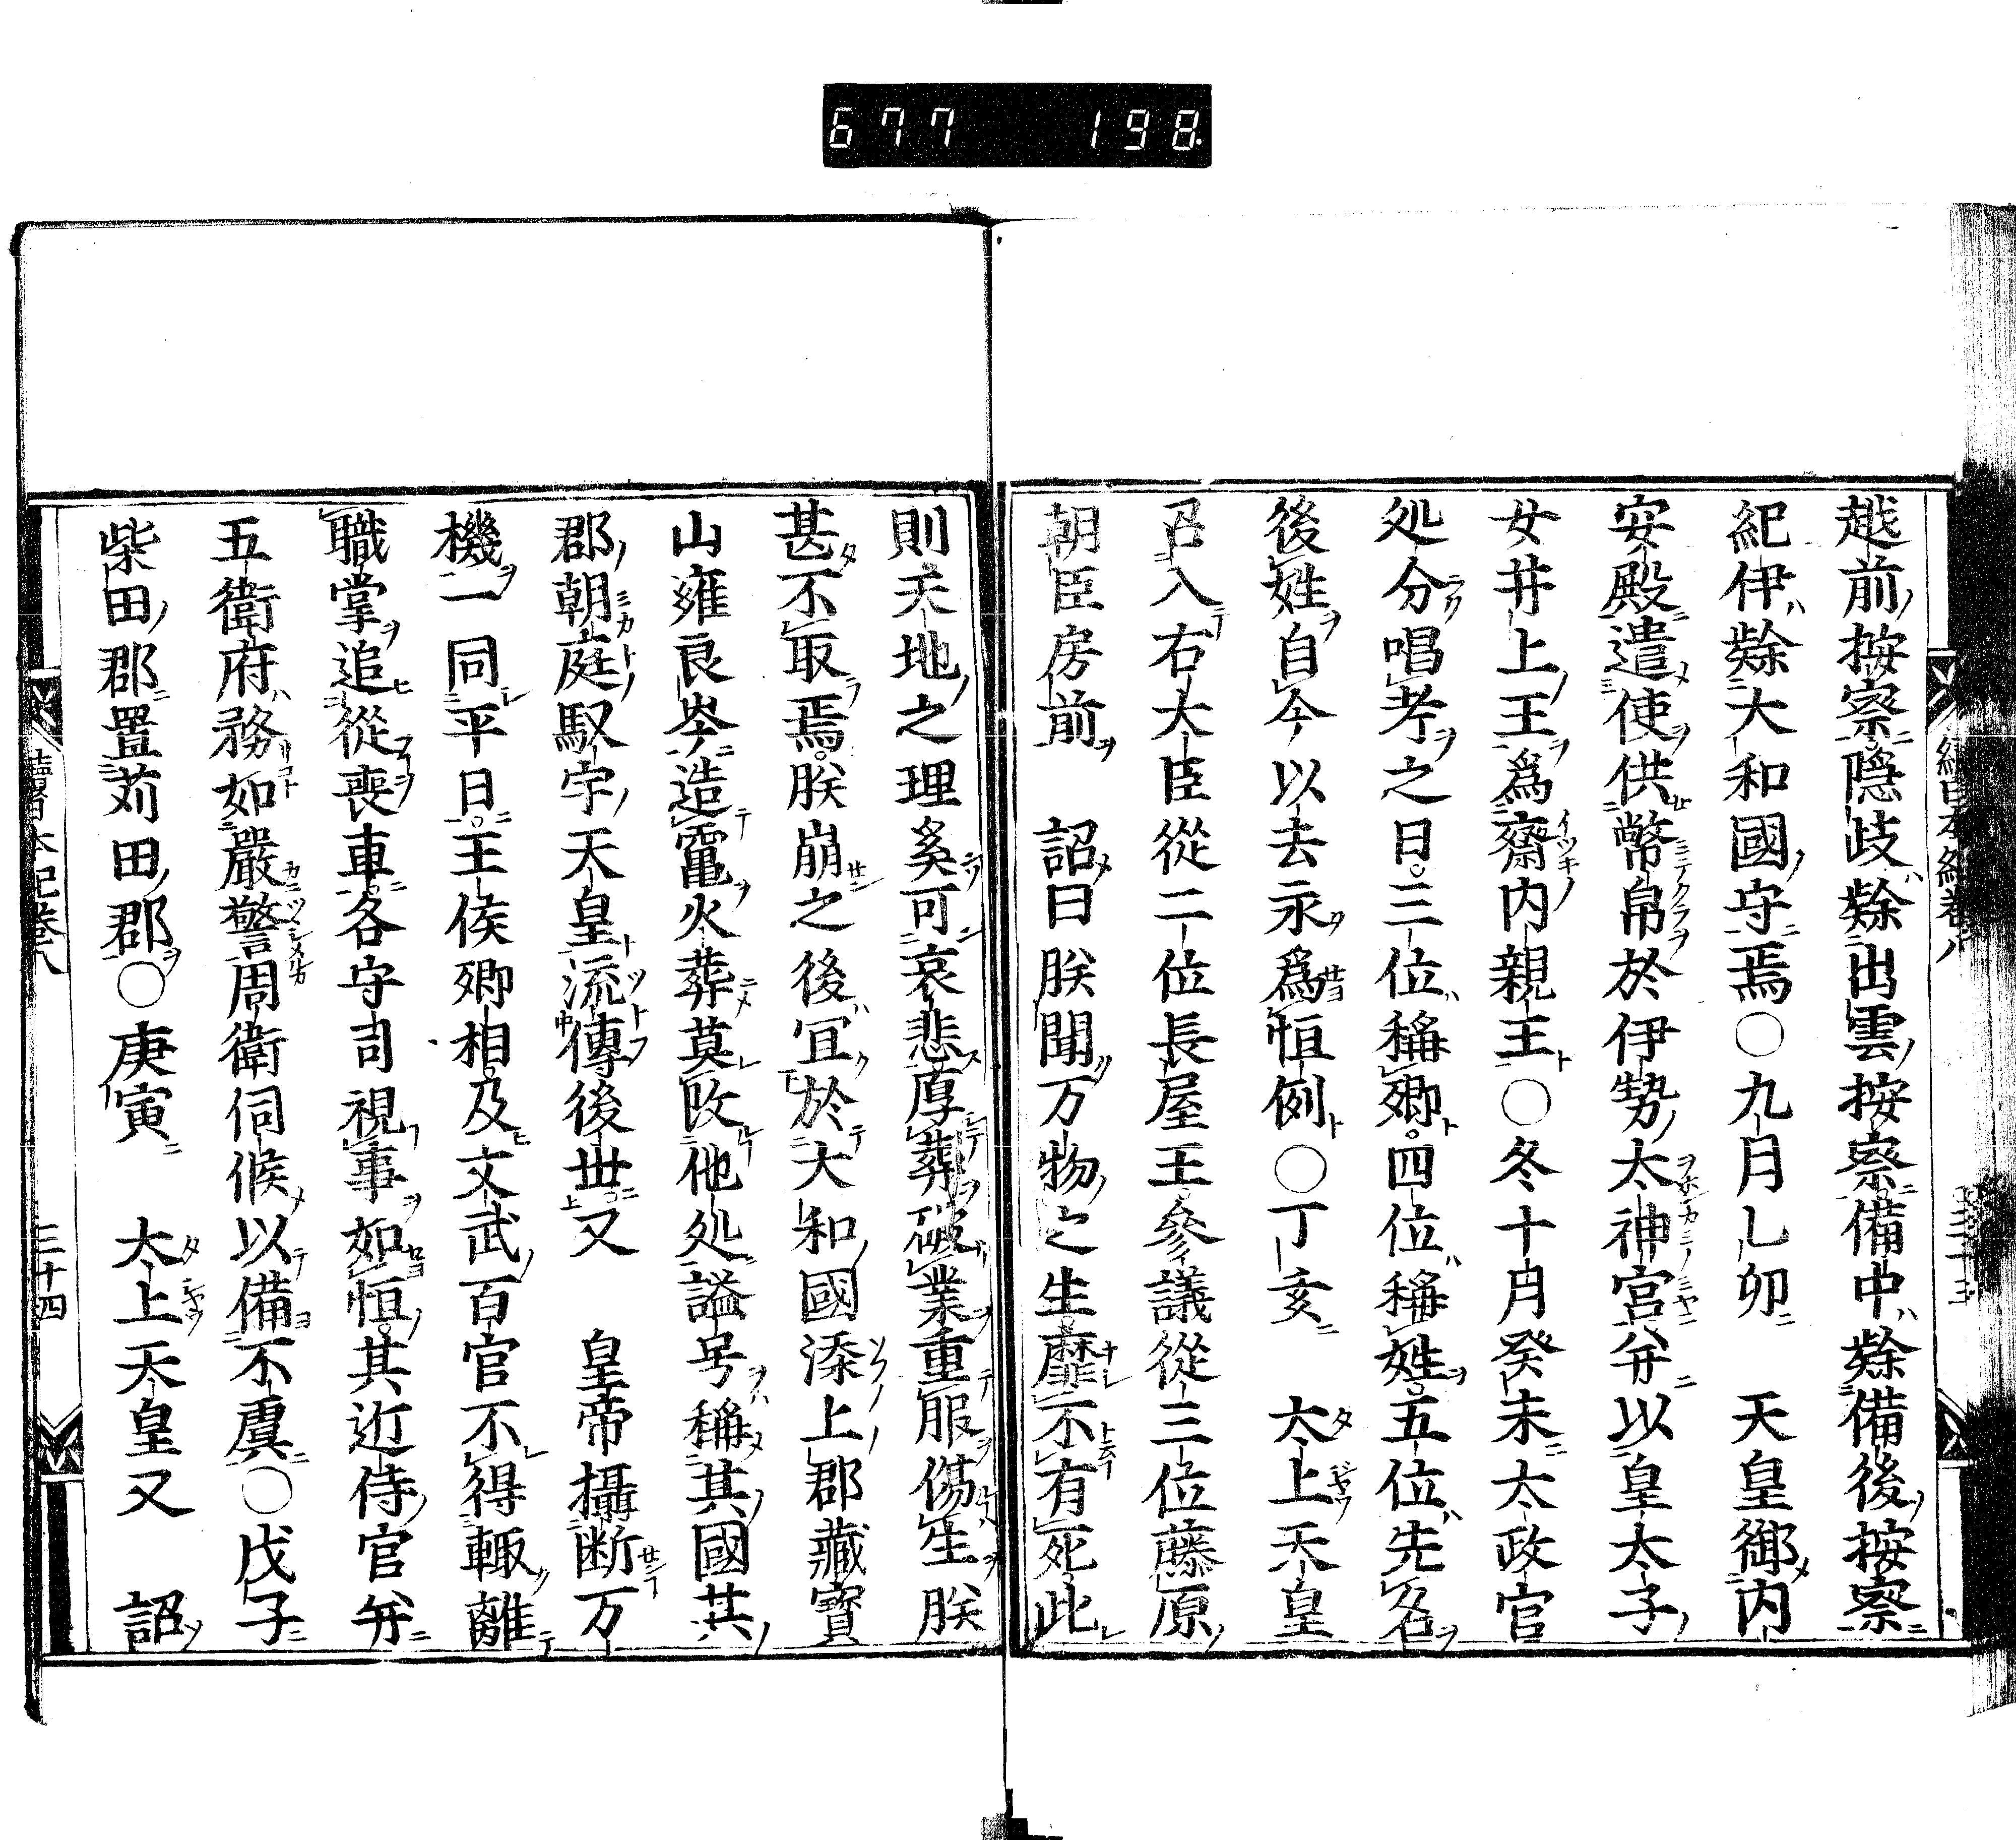 677 198
越前按察隠歧隷出雲按察備中隷備後按察
紀伊隷大和國守焉〇九月乚卯 天皇御内
安殿遣使供幣帛於伊勢太神宮并以皇太子
女井上王爲齋内親王〇冬十月癸未太政官
処分唱考之日三位稱卿四位稱姓五位先名
後姓自今以去永爲恒例〇丁亥 太上天皇
召入右大臣從二位長屋王參議從三位藤原
朝臣房前 詔曰朕聞万物之生靡不有死此
則天地之理奚可哀悲厚葬破業重服傷生朕
甚不取焉朕崩之後宜於大和國添上郡藏寳
山雍良岑造竃火葬莫改他処謚号稱其國其
郡朝庭馭宇天皇流傳後世又 皇帝攝断万
機一同平日王侯卿相及文武百官不得輙離
職掌追從喪車各守司視事如恒其近侍官并
五衛府務如嚴警周衛伺候以備不虞〇戊子
柴田郡置苅田郡〇庚寅 太上天皇又 詔
續日本紀卷八 三十四